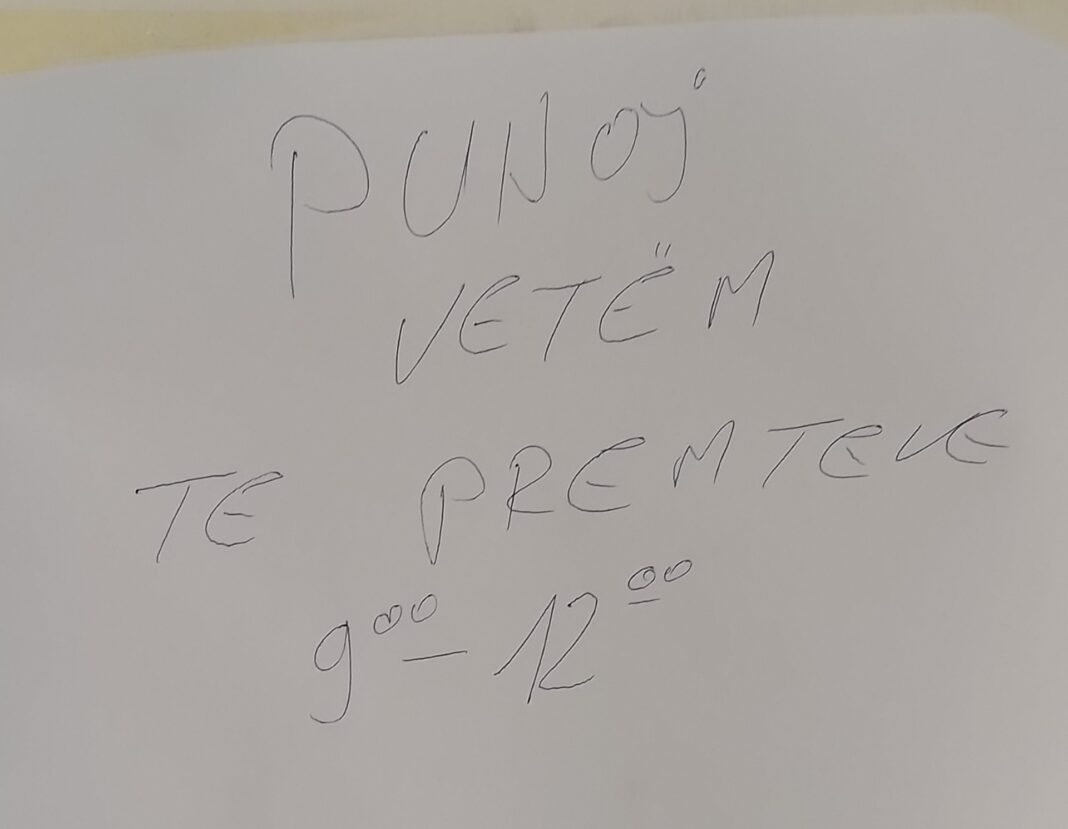 PUNOj
VETËM
TE PREMTEVE
9⁰⁰ - 12⁰⁰